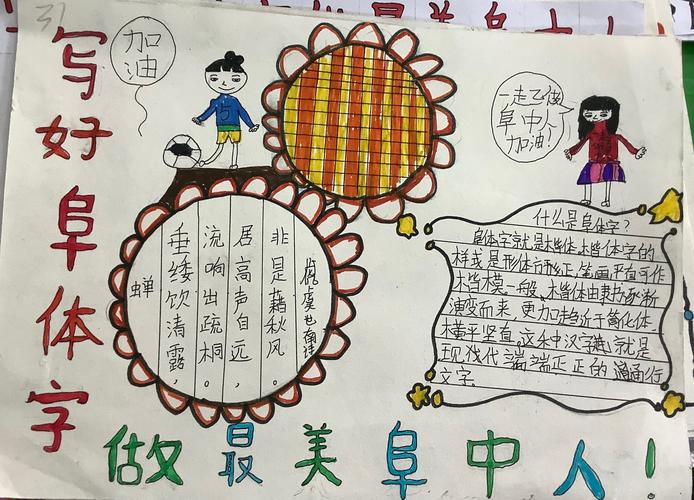 31
写好阜体字
加
油
一走乙做
阜中人
加油!
蝉
垂緌饮清露,
流响出疏桐。
居高声自远,
非是藉秋风。
虞世南诗
什么是阜体字?
阜体字就是楷体.楷体字的
样式是形体方形正,笔画平直可作
楷模一般、楷体由隶书逐渐
演变而来,更加趋近于简化体,
横平竖直,汉字就是
现代端端正正的通行
文字.
做最美阜中人!